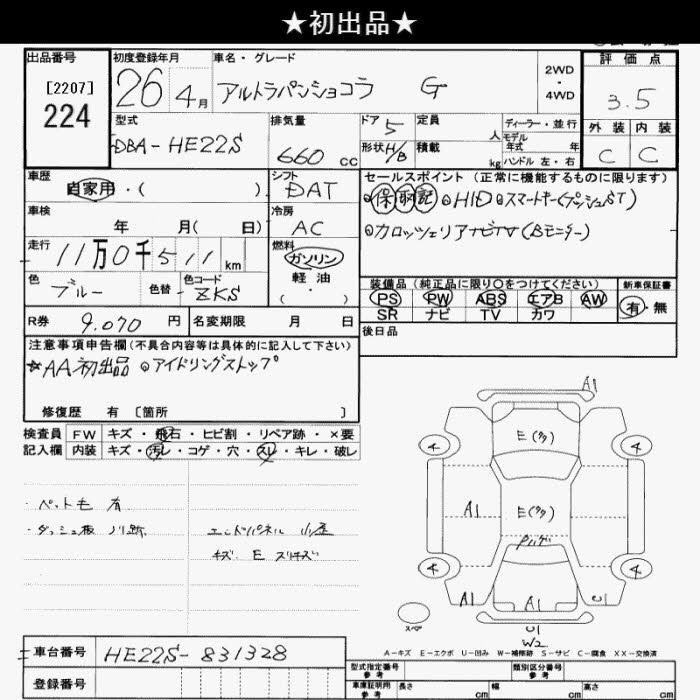 ★初出品★
出品番号
[2207]
224
初度登録年月
26 4月
車名・グレード
アルトラパンショコラ G
2WD
・
4WD
評価点
3.5
型式
DBA-HE22S
排気量
660 CC
ドア 5
形状 H/B
定員 人
積載 kg
ディーラー・並行
モデル
年式 年
ハンドル 左・右
外装 内装
C C
車歴
自家用・( )
シフト
DAT
車検
年 月( 日)
冷房
AC
セールスポイント (正常に機能するものに限ります)
⊙保 取 記 ⊙HID ⊙スマートキー(プッシュST)
⊙カロッツェリアナビTV(Bモニター)
走行
11万0千511km
燃料
ガソリン
軽油
( ・ )
色
ブルー
色替
色コード
ZKS
装備品 (純正品に限り○をつけてください)
PS PW ABS エアB AW
SR ナビ TV カワ
新車保証書
有・無
R券 9.070円
名変期限 月 日
後日品
注意事項申告欄(不具合内容等は具体的に記入して下さい)
☆AA初出品 ⊙アイドリングストップ
修復歴 有 〔箇所 〕
検査員
記入欄
FW キズ・飛石・ヒビ割・リペア跡・×要
内装 キズ・汚レ・コゲ・穴・スレ・キレ・破レ
・ペット毛 有
・ダッシュ板 ノリ跡
エンドパネル 小歪
キズ、E スリキズ
A1
E(多)
4 4
A1
E(多)
4 4
A1 A1 U1
スペア
U1
W2
A-キズ E-エクボ U-凹み W-補修跡 S-サビ C-腐食 XX-交換済
車台番号 HE22S-831328
登録番号
型式指定番号
参考
類別区分番号
参考
車庫証明用
参考
長さ cm
幅 cm
高さ cm